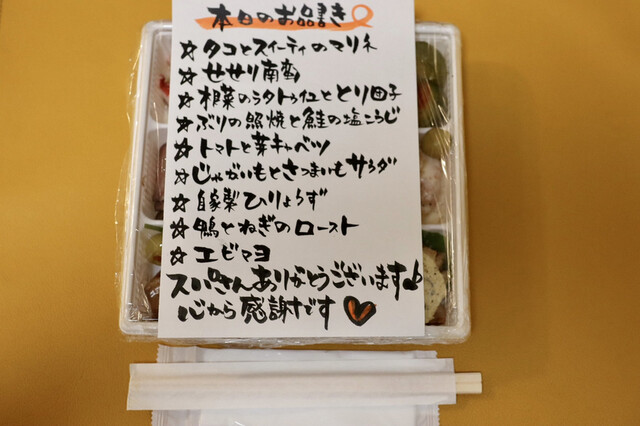 本日のお品書き
☆タコとスイーティのマリネ
☆せせり南蛮
☆根菜のラタトゥイユととり団子
☆ぶりの照焼と鮭の塩こうじ
☆トマトと芽キャベツ
☆じゃがいもとさつまいもサラダ
☆自家製ひりょうず
☆鴨とねぎのロースト
☆エビマヨ
スパさんありがとうございます♪
心から感謝です♡